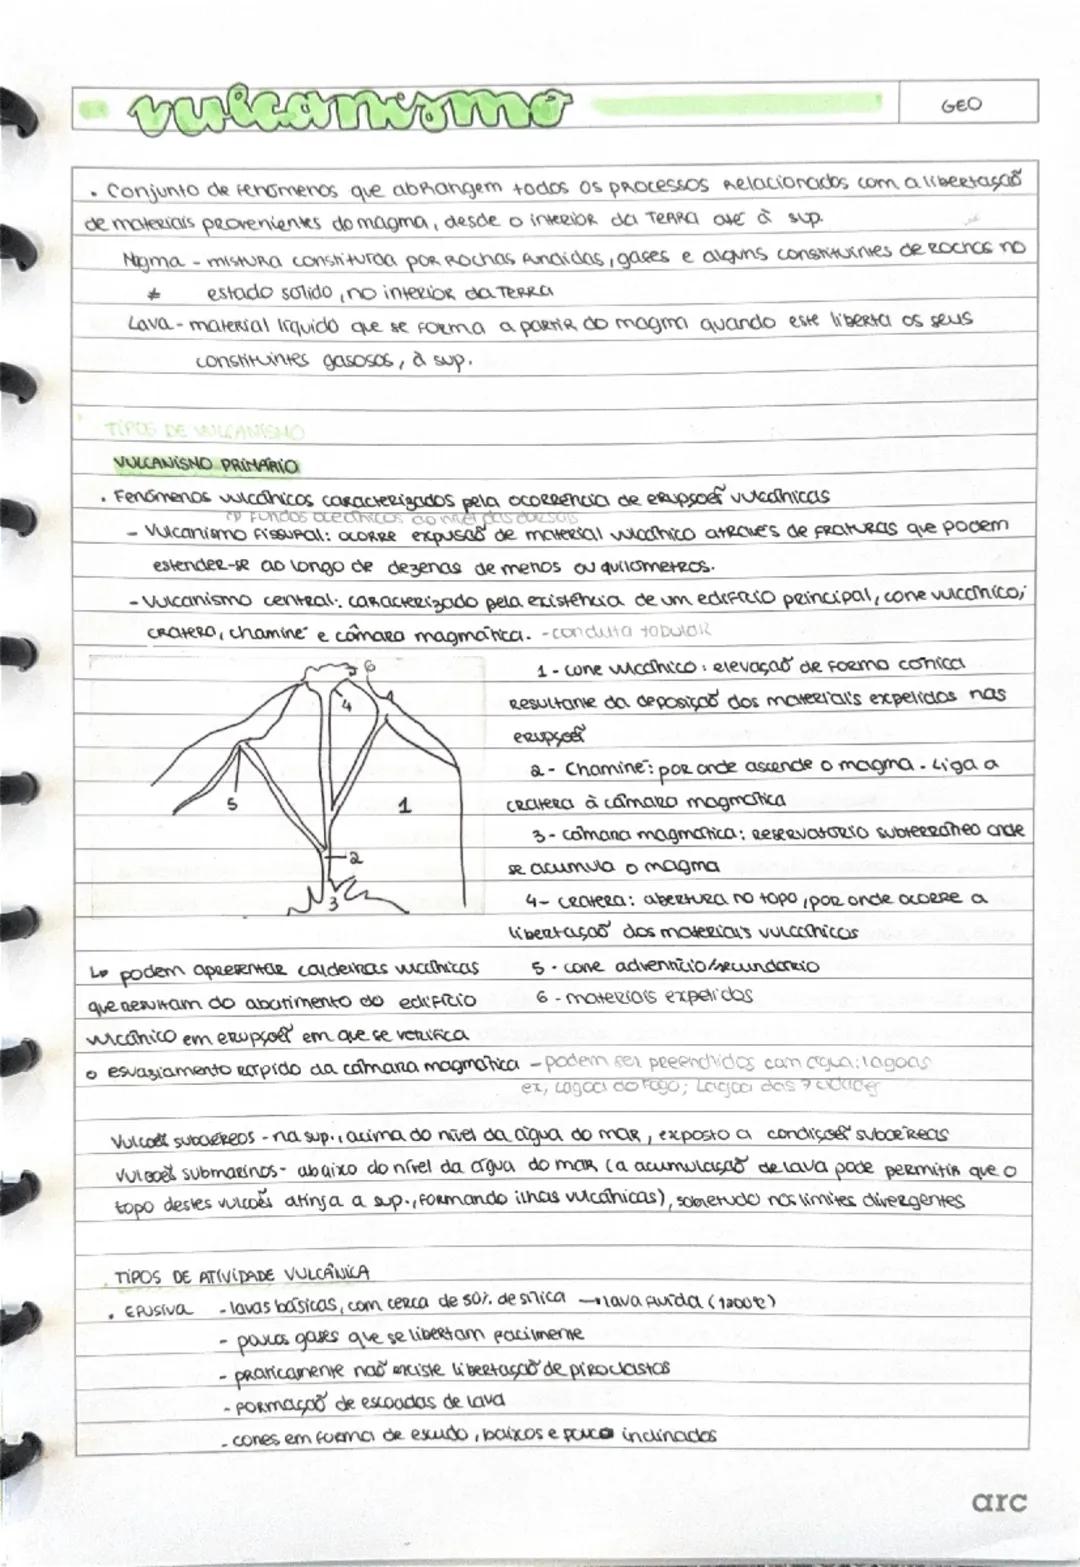 vulcanismo
GEO
. Conjunto de fenómenos que abrangem todos os processos relacionados com a libertação
de materiais provenientes do magma, desde o interior da Terra até à sup.
Magma - mistura constituída por rochas fundidas, gases e alguns constituintes de rochas no
* estado sólido, no interior da Terra
Lava - material líquido que se forma a partir do magma quando este liberta os seus
constituintes gasosos, à sup.
TIPOS DE VULCANISMO
VULCANISMO PRIMÁRIO
. Fenómenos vulcânicos caracterizados pela ocorrência de erupções vulcânicas
fundos oceânicos ao nível das dorsais
- Vulcanismo fissural: ocorre expusão de material vulcânico através de fraturas que podem
estender-se ao longo de dezenas de metros ou quilometros.
- Vulcanismo central: caracterizado pela existência de um edifício principal, cone vulcânico;
cratera, chaminé e câmara magmática. - conduta tobular
1 - cone vulcânico: elevação de forma cónica
resultante da deposição dos materiais expelidos nas
erupções
2 - Chaminé: por onde ascende o magma. Liga a
cratera à câmara magmática
3 - câmara magmática: reservatório subterrâneo onde
se acumula o magma
4 - cratera: abertura no topo, por onde ocorre a
libertação dos materiais vulcânicos
5 - cone adventício/secundário
6 - materiais expelidos
6
4
5
1
2
3
↳ podem apresentar caldeiras vulcânicas
que resultam do abatimento do edifício
vulcânico em erupções em que se verifica
o esvaziamento rápido da câmara magmática - podem ser preenchidos com água: lagoas
ex, Lagoa do Fogo; Lagoa das 7 cidades
Vulcões subaéreos - na sup., acima do nível da água do mar, exposto a condições subaéreas
Vulcões submarinos - abaixo do nível da água do mar (a acumulação de lava pode permitir que o
topo destes vulcões atinja a sup., formando ilhas vulcânicas), sobretudo nos limites divergentes
TIPOS DE ATIVIDADE VULCÂNICA
. EFUSIVA - lavas básicas, com cerca de 50% de sílica → lava fluida (1200°C)
- poucos gases que se libertam facilmente
- praticamente não existe libertação de piroclastos
- formação de escoadas de lava
- cones em forma de escudo, baixos e pouco inclinados
arc